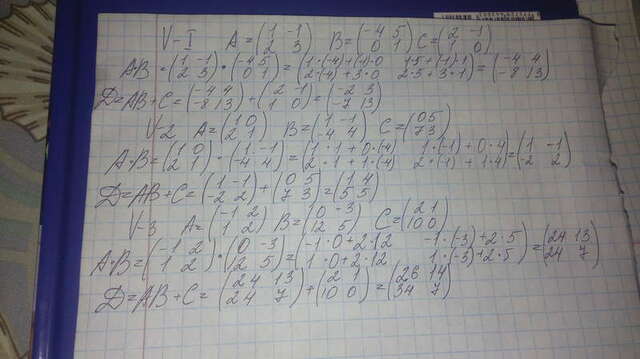 V-I A = (1 -1; 2 3) B = (-4 5; 0 1) C = (2 -1; 1 0)
AB = (1 -1; 2 3) · (-4 5; 0 1) = (1·(-4)+(-1)·0 1·5+(-1)·1; 2·(-4)+3·0 2·5+3·1) = (-4 4; -8 13)
D = AB + C = (-4 4; -8 13) + (2 -1; 1 0) = (-2 3; -7 13)
V-2 A = (1 0; 2 1) B = (1 -1; -4 4) C = (0 5; 7 3)
A·B = (1 0; 2 1) · (1 -1; -4 4) = (1·1+0·(-4) 1·(-1)+0·4; 2·1+1·(-4) 2·(-1)+1·4) = (1 -1; -2 2)
D = AB + C = (1 -1; -2 2) + (0 5; 7 3) = (1 4; 5 5)
V-3 A = (-1 2; 1 2) B = (0 -3; 12 5) C = (2 1; 10 0)
A·B = (-1 2; 1 2) · (0 -3; 12 5) = (-1·0+2·12 -1·(-3)+2·5; 1·0+2·12 1·(-3)+2·5) = (24 13; 24 7)
D = AB + C = (24 13; 24 7) + (2 1; 10 0) = (26 14; 34 7)